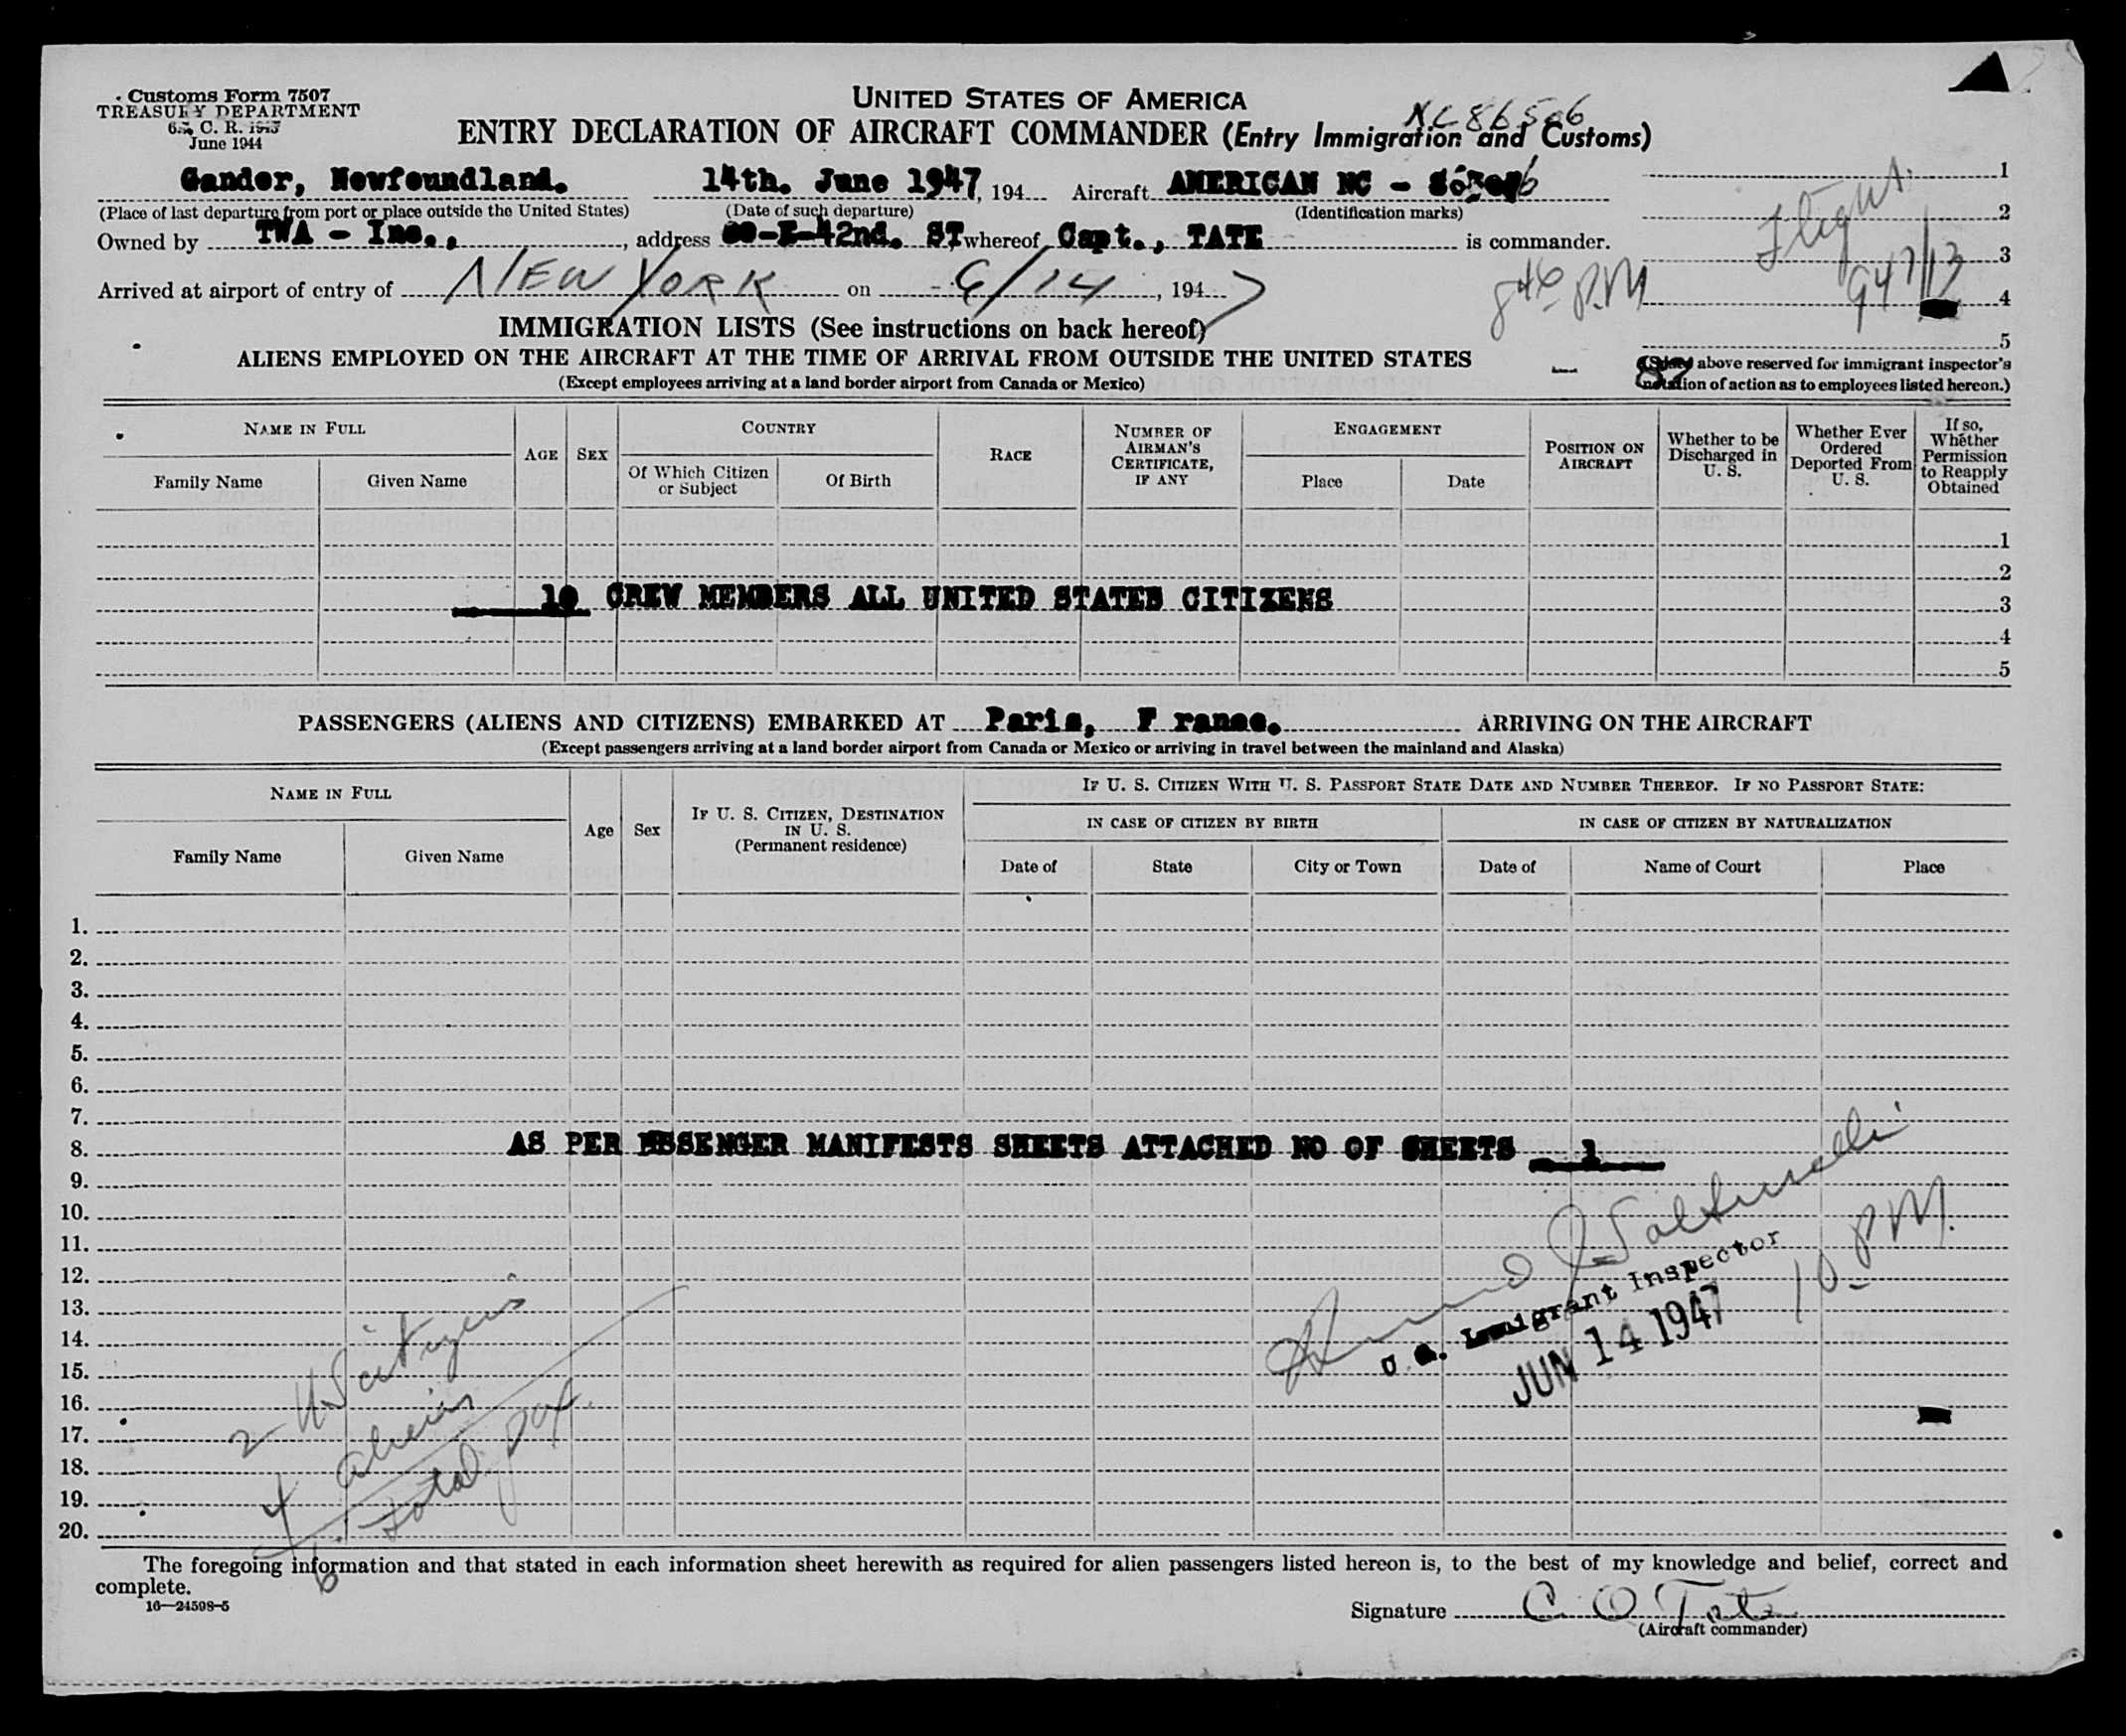 Customs Form 7507
TREASURY DEPARTMENT
C. R.
June 1944
UNITED STATES OF AMERICA
NC86506
ENTRY DECLARATION OF AIRCRAFT COMMANDER (Entry Immigration and Customs)
Gander, Newfoundland. 14th. June 1947, 194 Aircraft AMERICAN NC -
(Place of last departure from port or place outside the United States) (Date of such departure) (Identification marks)
Owned by TWA - Inc., , address 60-E-42nd. ST whereof Capt., TATE is commander.
Arrived at airport of entry of NEW YORK on 6/14, 1947
1
2
3
4
5
Flight
947/13
8 46 P.M
IMMIGRATION LISTS (See instructions on back hereof)
ALIENS EMPLOYED ON THE AIRCRAFT AT THE TIME OF ARRIVAL FROM OUTSIDE THE UNITED STATES
(Except employees arriving at a land border airport from Canada or Mexico)
above reserved for immigrant inspector's
notation of action as to employees listed hereon.)
NAME IN FULL
Family Name
Given Name
AGE
SEX
COUNTRY
Of Which Citizen
or Subject
Of Birth
RACE
NUMBER OF
AIRMAN'S
CERTIFICATE,
IF ANY
ENGAGEMENT
Place
Date
POSITION ON
AIRCRAFT
Whether to be
Discharged in
U. S.
Whether Ever
Ordered
Deported From
U. S.
If so,
Whether
Permission
to Reapply
Obtained
1
2
10 CREW MEMBERS ALL UNITED STATES CITIZENS 3
4
5
PASSENGERS (ALIENS AND CITIZENS) EMBARKED AT Paris, F rance. ARRIVING ON THE AIRCRAFT
(Except passengers arriving at a land border airport from Canada or Mexico or arriving in travel between the mainland and Alaska)
NAME IN FULL
Family Name
Given Name
Age
Sex
IF U. S. CITIZEN, DESTINATION
IN U. S.
(Permanent residence)
IF U. S. CITIZEN WITH U. S. PASSPORT STATE DATE AND NUMBER THEREOF. IF NO PASSPORT STATE:
IN CASE OF CITIZEN BY BIRTH
IN CASE OF CITIZEN BY NATURALIZATION
Date of
State
City or Town
Date of
Name of Court
Place
1.
2.
3.
4.
5.
6.
7.
8. AS PER PSSENGER MANIFESTS SHEETS ATTACHED NO OF SHEETS 1
9.
10.
11.
12.
13.
14.
15.
16.
17.
18.
19.
20.
U. S. Immigrant Inspector
JUN 14 1947
10 PM.
2 US citizens
4 aliens
6 total pax.
The foregoing information and that stated in each information sheet herewith as required for alien passengers listed hereon is, to the best of my knowledge and belief, correct and
complete.
16—24598-5
Signature C O Tate
(Aircraft commander)